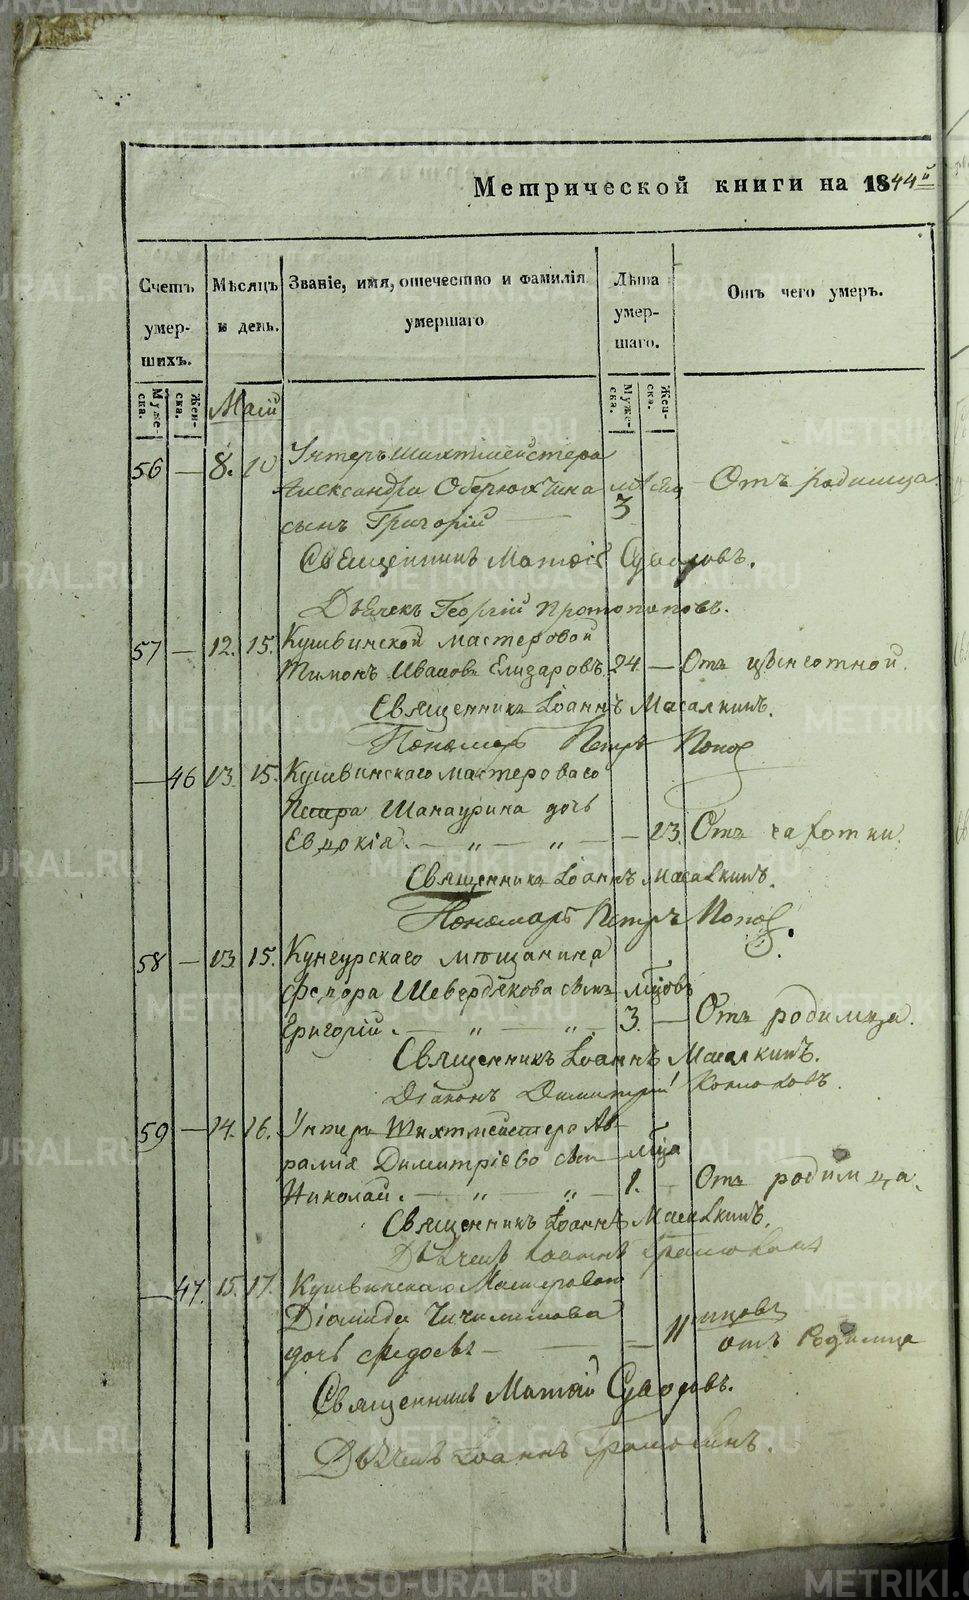 Метрической книги на 1844й
Счетъ умер-шихъ.
Муже-ска.
Жен-ска.
Мѣсяцъ и день.
Званіе, имя, отечество и фамилія умершаго
Лѣта умер-шаго.
Муже-ска.
Жен-ска.
Отъ чего умеръ.
Маій
56 — 8. 10 Унтеръшихтмейстера
Александра Оберюхтина
сынъ Григорій — 3 Отъ родимца
Священникъ Матѳій Удаловъ.
Дьячекъ Георгій Протопоповъ.
57 — 12. 15. Кушвинской мастеровой
Тимонъ Ивановъ Елизаровъ 24. — Отъ
Священникъ Іоаннъ Масалкинъ.
Пономарь Петръ Попов
— 46 13. 15. Кушвинскаго мастероваго
Петра Шанаурина дочь
Евдокія. — „ — „ — — 23. Отъ чахотки.
Священникъ Іоаннъ Масалкинъ.
Пономарь Петръ Попов.
58 — 13. 15. Кунгурскаго мѣщанина
Федора Шевердякова сынъ мѣцовъ
Григорій. — „ — „ — 3. — Отъ родимца.
Священникъ Іоаннъ Масалкинъ.
Діаконъ Димитрій
59 — 14. 16. Унтеръ Шихтмейстера Ав-
рамія Димитріева сынъ мѣца
Николай. — „ — „ — 1. — Отъ родимца.
Священникъ Іоаннъ Масалкинъ.
Дьячекъ Іоаннъ
— 47. 15. 17. Кушвинскаго Мастероваго
Діамида
дочь Федосья — — 11 мцовъ
отъ Родимца
Священникъ Матѳій Удаловъ.
Дьячекъ Іоаннъ
METRIKI.GASO-URAL.RU